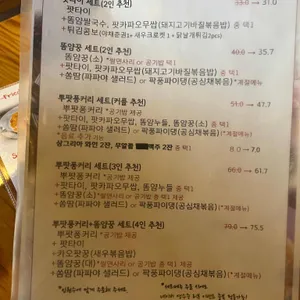 팟타이 세트(2인 추천)
팟타이
+똠얌쌀국수, 팟카파오무쌉(돼지고기바질볶음밥) 중 택1
+튀김콤보(야채춘권1+새우크로켓1+닭날개튀김2pcs)
똠얌꿍 세트(2인 추천) 35.7
똠얌꿍(소) *쌀면사리 or 공기밥 중 택1
+팟타이, 팟카파오무쌉(돼지고기바질볶음밥) 중 택1
+쏨땀(파파야 샐러드) or 팍풍파이댕(공심채볶음) *계절메뉴
뿌팟퐁커리 세트(커플 추천) 47.7
뿌팟퐁커리 *공기밥 제공
+팟타이, 팟카파오무쌉, 똠얌누들, 똠얌꿍(소) 중 택1
+쏨땀(파파야 샐러드) or 팍풍파이댕(공심채볶음) *계절메뉴
음료 추가 가능
샹그리아 와인 2잔, 무알콜 맥주 2잔 중 택1 8.0→7.0
뿌팟퐁커리 세트(3인 추천) 61.7
뿌팟퐁커리 *공기밥 제공
+팟타이, 팟카파오무쌉, 똠얌누들 중 택1
+똠얌꿍(소) *쌀면사리 or 공기밥 중 택1
+쏨땀(파파야 샐러드) or 팍풍파이댕(공심채볶음) *계절메뉴
뿌팟퐁커리+똠얌꿍 세트(4인 추천) 75.5
뿌팟퐁커리 *공기밥 제공
+팟타이
+카오팟꿍(새우볶음밥)
+똠얌꿍(대) *쌀면사리 or 공기밥 중 택1
+쏨땀(파파야 샐러드) or 팍풍파이댕(공심채볶음) *계절메뉴